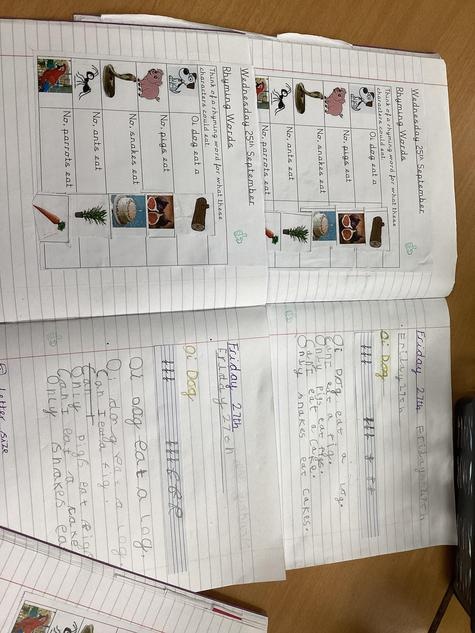 Wednesday 25th September
Rhyming Words
Think of a rhyming word for what these
characters could eat.
Oi, dog eat a
No, pigs eat
No, snakes eat
No, ants eat
No, parrots eat
Friday 27th
Oi Dog
Oi Dog eat a log.
Can I eat a fig.
Only pigs eat figs.
Can I eat a cake.
Only snakes eat cakes.
Wednesday 25th September
Rhyming Words
Think of a rhyming word for what these
characters could eat.
Oi, dog eat a
No, pigs eat
No, snakes eat
No, ants eat
No, parrots eat
Friday 27th
Friday 27th
Oi Dog
Oi dog eat a log.
Can I
Only pigs eat fig
Can I eat a cake
Only snakes ea
Letter size